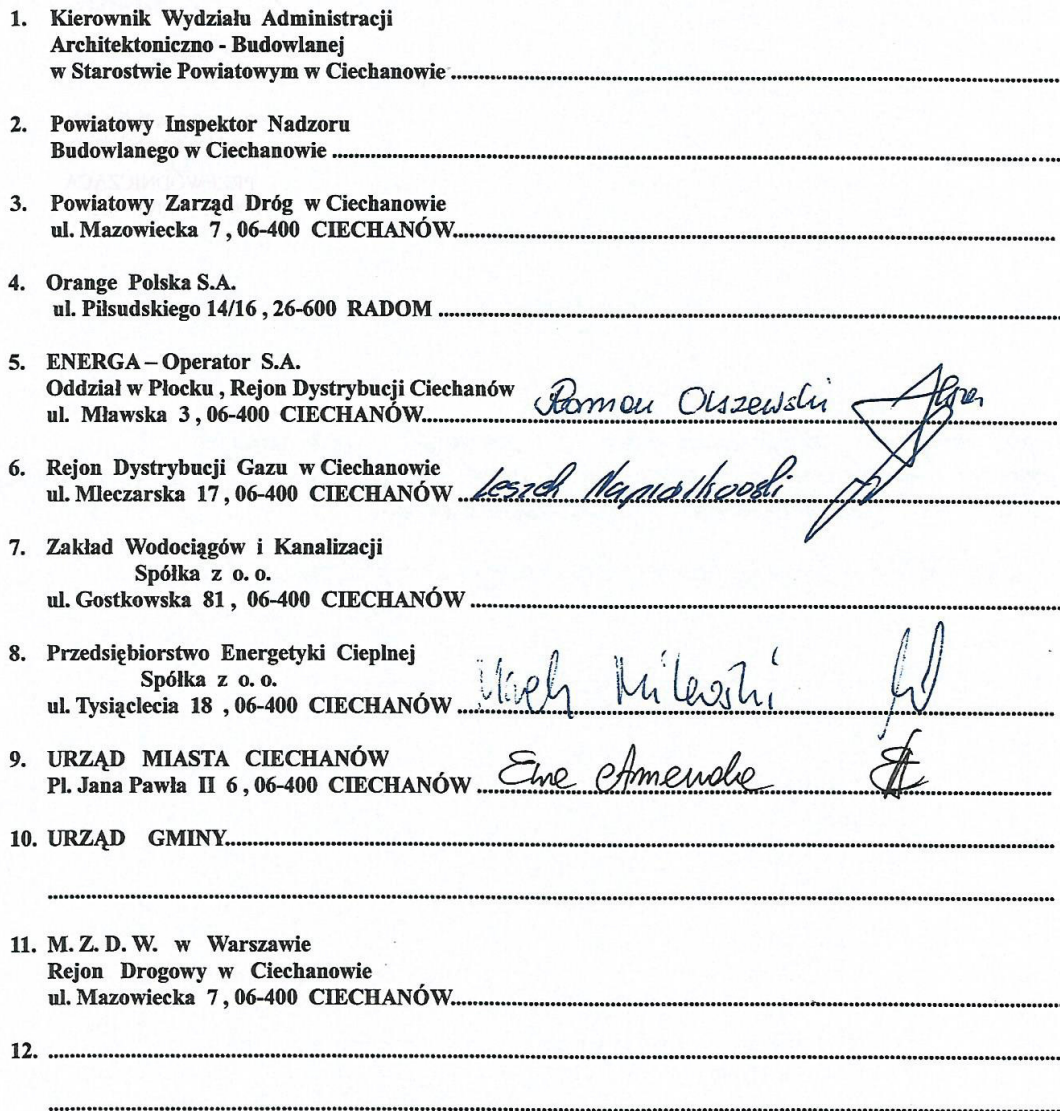 1. Kierownik Wydziału Administracji
Architektoniczno - Budowlanej
w Starostwie Powiatowym w Ciechanowie
2. Powiatowy Inspektor Nadzoru
Budowlanego w Ciechanowie
3. Powiatowy Zarząd Dróg w Ciechanowie
ul. Mazowiecka 7 , 06-400 CIECHANÓW
4. Orange Polska S.A.
ul. Piłsudskiego 14/16 , 26-600 RADOM
5. ENERGA – Operator S.A.
Oddział w Płocku , Rejon Dystrybucji Ciechanów
ul. Mławska 3 , 06-400 CIECHANÓW Roman Olszewski
6. Rejon Dystrybucji Gazu w Ciechanowie
ul. Mleczarska 17 , 06-400 CIECHANÓW Leszek
7. Zakład Wodociągów i Kanalizacji
Spółka z o. o.
ul. Gostkowska 81 , 06-400 CIECHANÓW
8. Przedsiębiorstwo Energetyki Cieplnej
Spółka z o. o.
ul. Tysiąclecia 18 , 06-400 CIECHANÓW Milewski
9. URZĄD MIASTA CIECHANÓW
Pl. Jana Pawła II 6 , 06-400 CIECHANÓW
10. URZĄD GMINY
11. M. Z. D. W. w Warszawie
Rejon Drogowy w Ciechanowie
ul. Mazowiecka 7 , 06-400 CIECHANÓW
12.